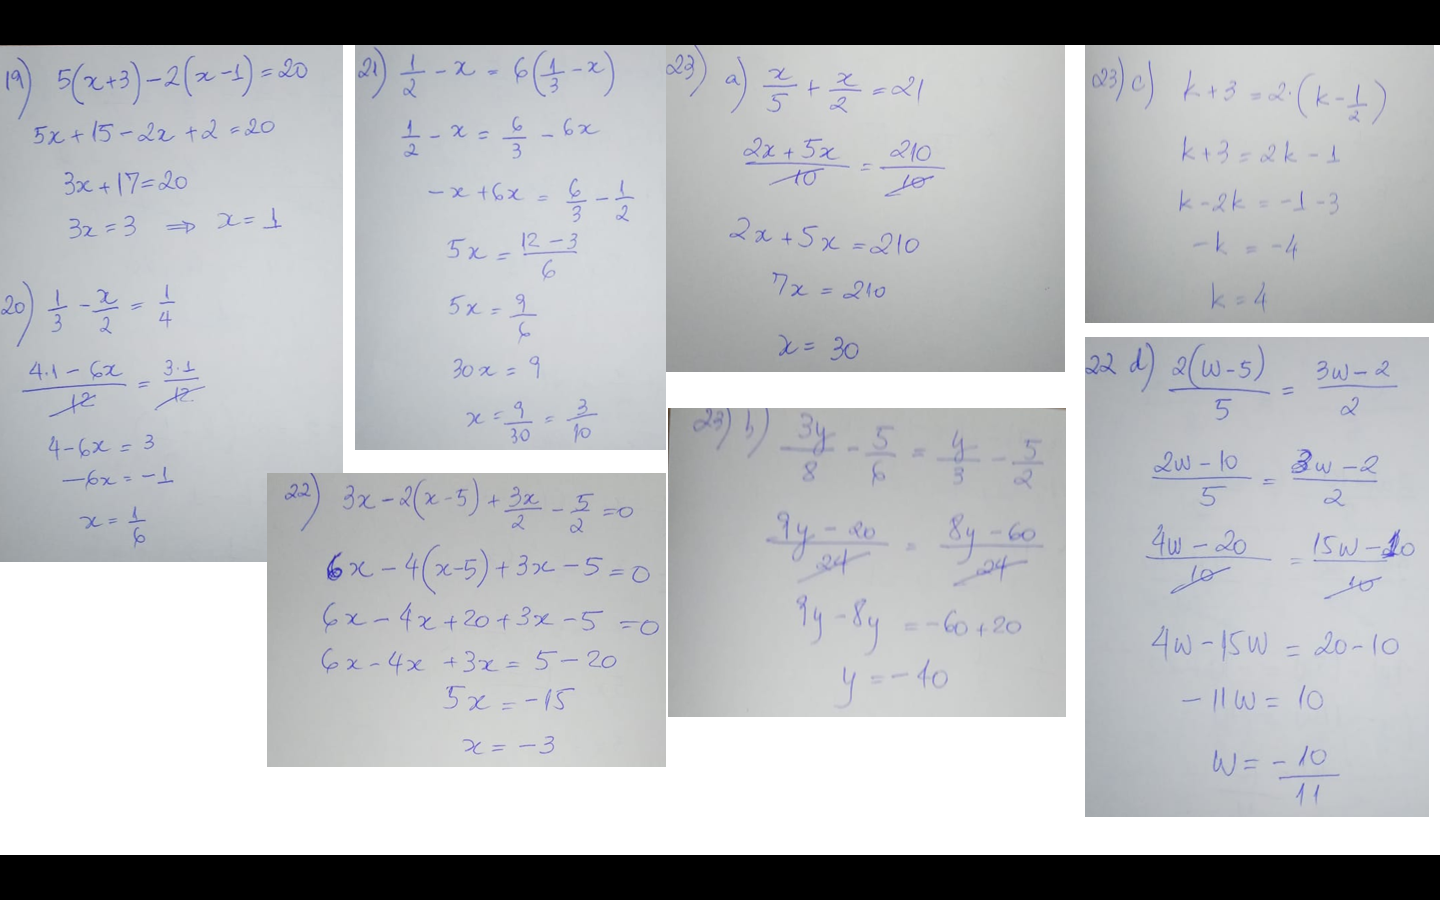 19) 5(x+3)-2(x-1)=20
5x+15-2x+2=20
3x+17=20
3x=3 ⇒ x=1
20) 1/3 - x/2 = 1/4
(4·1-6x)/12 = (3·1)/12
4-6x=3
-6x=-1
x=1/6
21) 1/2 - x = 6(1/3 - x)
1/2 - x = 6/3 - 6x
-x+6x = 6/3 - 1/2
5x = (12-3)/6
5x = 9/6
30x = 9
x = 9/30 = 3/10
22) 3x-2(x-5)+3x/2 - 5/2 =0
6x-4(x-5)+3x-5=0
6x-4x+20+3x-5=0
6x-4x+3x=5-20
5x=-15
x=-3
23) a) x/5 + x/2 = 21
(2x+5x)/10 = 210/10
2x+5x=210
7x=210
x=30
23) b) 3y/8 - 5/6 = y/3 - 5/2
(9y-20)/24 = (8y-60)/24
9y-8y=-60+20
y=-40
23) c) k+3=2·(k-1/2)
k+3=2k-1
k-2k=-1-3
-k=-4
k=4
22 d) 2(w-5)/5 = (3w-2)/2
(2w-10)/5 = (3w-2)/2
(4w-20)/10 = (15w-10)/10
4w-15w=20-10
-11w=10
w=-10/11